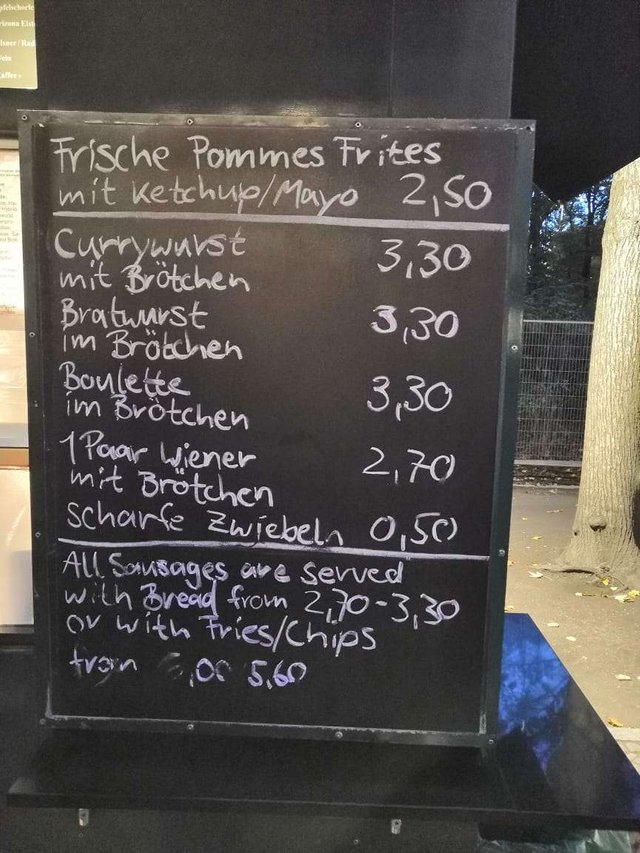 pfelschorle
rizona Eist
Wein
Kaffee
Frische Pommes Frites
mit Ketchup/Mayo 2,50
Currywurst 3,30
mit Brötchen
Bratwurst 3,30
im Brötchen
Boulette 3,30
im Brötchen
1 Paar Wiener 2,70
mit Brötchen
scharfe Zwiebeln 0,50
All Sausages are served
with Bread from 2,70-3,30
or with Fries/Chips
from 5,60